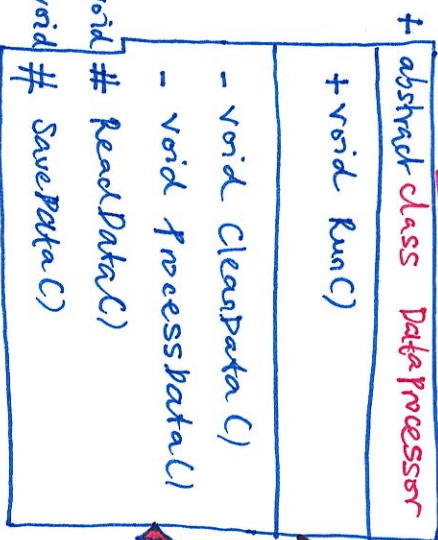 + abstract class DataProcessor
+ void Run()
- void CleanData()
- void ProcessData()
void # ReadData()
void # SaveData()